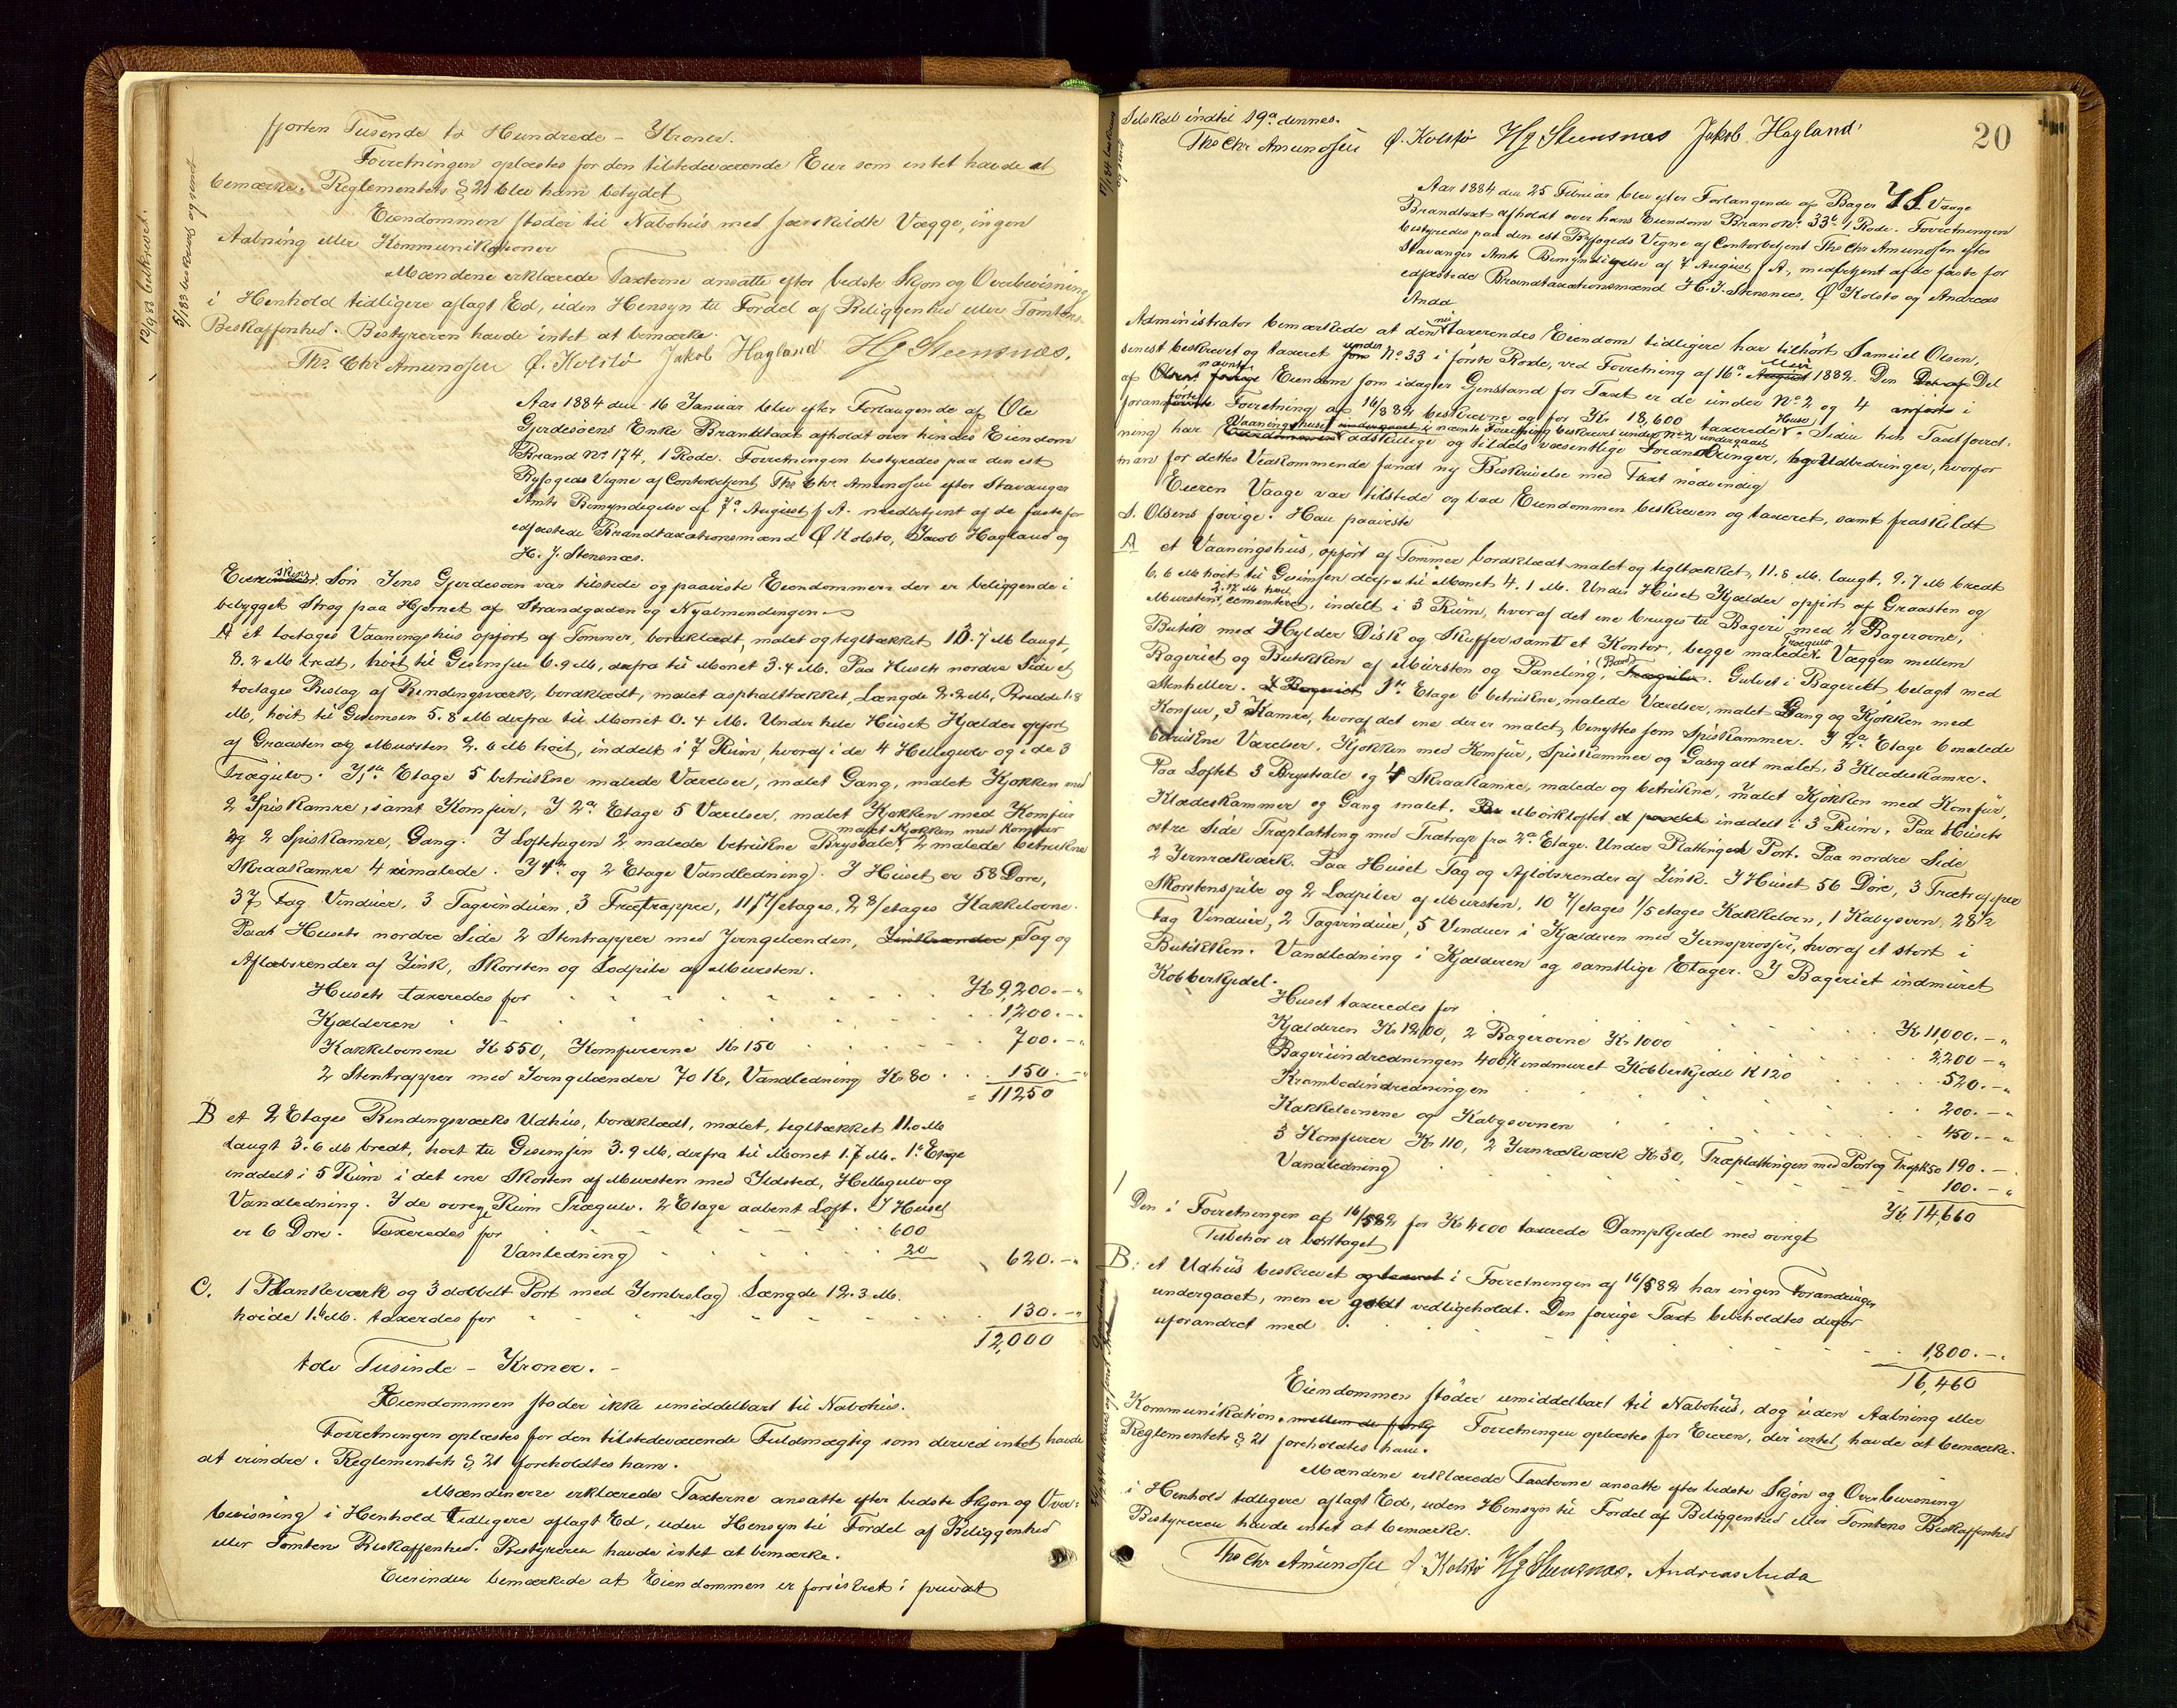 fjorten Tusende to Hundrede - Kroner.
Forretningen oplæstes for den tilstedeværende Eier som intet havde at
bemærke. Reglementets § 21 blev ham betydet
Eiendommen støder til Nabohus med særskildte Vægge, ingen
Aabning eller Kommunikationer
Mændene erklærede Taxterne ansatte efter bedste Skjøn og Overbevisning
i Henhold tidligere aflagt Ed, uden Hensyn til Fordel af Beliggenhed eller Tomtens
Beskaffenhed. Bestyreren havde intet at bemærke.
Ths. Chr Amundsen Ø. Kolstø Jakob Hagland HJ Steensnæs.
Aar 1884 den 16 Januar blev efter Forlangende af Ole
Gjerdesøens Enke Brandtaxt afholdt over hendes Eiendom
Brand No 174, 1 Rode. Forretningen bestyredes paa den est
Byfogeds Vegne af Contorbetjent Ths Chr Amundsen efter Stavanger
Amts Bemyndigelse af 7de August f A. medbetjent af de faste for
edfæstede Brandtaxationsmænd Ø Kolstø, Jacob Hagland og
H. J. Stensnæs.
Eierindens Søn Jens Gjerdesøen var tilstede og paaviste Eiendommen der er beliggende i
bebygget Strøg paa Hjørnet af Strandgaden og Nyalmendingen
A et toetages Vaaningshus opført af Tømmer, bordklædt, malet og tegltækket 10.7 M langt,
8.2 M bredt, høit til Gesimsen 6.9 M, derfra til Mønet 3.4 M. Paa Husets nordre Side et
toetages Bislag af Bindingsværk, bordklædt, malet asphalttækket, Længde 2.2 M, Bredde 1.8
M, høit til Gesimsen 5.8 M derfra til Mønet 0.4 M. Under hele Huset Kjælder opført
af Graasten og Mursten 2.6 M høit, inddelt i 7 Rum, hvoraf i de 4 Hellegulv og i de 3
Trægulv. I 1ste Etage 5 betrukne malede Værelser, malet Gang, malet Kjøkken med
2 Spiskamre, samt Komfur, I 2den Etage 5 Værelser, malet Kjøkken med Komfur
og 2 Spiskamre, Gang. I Loftetagen 2 malede betrukne Brystsale, malet Kjøkken med Komfur 2 malede betrukne
Skraakamre 4 umalede. I 1ste og 2 Etage Vandledning. I Huset er 58 Døre,
37 Fag Vinduer, 3 Tagvinduer, 3 Trætrapper, 11 7/etages, 2 8/etages Kakkelovne.
Paa Husets nordre Side 2 Stentrapper med Jerngelænder, Tag og
Afløbsrender af Zink, Skorsten og Lodpibe af Mursten.
Husets taxeredes for Kr 9,200.-"
Kjælderen 1,200.-"
Kakkelovnene Kr 550, Komfurerne Kr 150 700.-"
2 Stentrapper med Jerngelænder 70 Kr, Vandledning Kr 80 150.-"
11250
B et 2 Etages Bindingsværks Udhus, bordklædt, malet, tegltækket 11.0 M
langt 3.6 M bredt, høit til Gesimsen 3.9 M, derfra til Mønet 1.7 M. 1ste Etage
inddelt i 5 Rum i det ene Skorsten af Mursten med Ildsted, Hellegulv og
Vandledning. I de øvrige Rum Trægulv. 2 Etage aabent Loft. I Huset
er 6 Døre. Taxeredes for 600
Vanledning 20 620.-"
C. 1 Plankeværk og 3 dobbelt Port med Jernbeslag Længde 12.3 M.
høide 1.6 M. taxerdes for 130.-"
12,000
tolv Tusinde - Kroner.-
Eiendommen støder ikke umiddelbart til Nabohus.
Forretningen oplæstes for den tilstedeværende Fuldmægtig som derved intet havde
at erindre. Reglementets § 21 foreholdtes ham.
Mændene erklærede Taxterne ansatte efter bedste Skjøn og Over-
bevisning i Henhold tidligere aflagt Ed, uden Hensyn til Fordel af Beliggenhed
eller Tomtens Beskaffenhed. Bestyreren havde intet at bemærke.
Eierinden bemærkede at Eiendommen er forsikret i privat
12/9 83 beskrevet.
5/1 83 beskrevet og sendt
Selskab indtil 19de dennes.
Ths Chr Amundsen Ø. Kolstø HJ Steensnæs Jakob Hagland
20
Aar 1884 den 25 Februar blev efter Forlangende af Bager Vaage
Brandtaxt afholdt over hans Eiendom Brand No. 33b 1 Rode. Forretningen
bestyredes paa den est Byfogeds Vegne af Contorbetjent Ths Chr Amundsen efter
Stavanger Amts Bemyndigelse af 7 August f A., medbetjent af de faste for
edfæstede Brandtaxationsmænd H. J. Stensnæs, Ø Kolstø og Andreas
Anda
Administrator bemærkede at den nu taxerendes Eiendom tidligere har tilhørt Samuel Olsen,
senest beskrevet og taxeret under No 33 i første Rode, ved Forretning af 16de Mai 1882. Den Del
af nævnte Eiendom som idag er Gjenstand for Taxt er de under No 2 og 4 i
foranførte Forretning af 16/5 82 beskrevne og for Kr 18,600 taxerede Huse. Siden hin Taxtforret-
ning har Vaaningshuset i nævnte Forretning beskrevet under No 2 undergaaet adskillige og tildels væsentlige Forandringer, og Udbedringer, hvorfor
man for dettes Vedkommende fandt ny Beskrivelse med Taxt nødvendig
Eieren Vaage var tilstede og bad Eiendommen beskreven og taxeret, samt fraskildt
S. Olsens øvrige. Han paaviste
A et Vaaningshus, opført af Tømmer bordklædt malet og tegltækket, 11.8 M. langt, 9.7 M bredt
6.6 M høit til Gesimsen derfra til Mønet 4.1 M. Under Huset Kjælder opført af Graasten og
Mursten, 2.17 M høit cementeret, indelt i 3 Rum, hvoraf det ene bruges til Bageri med 2 Bagerovne,
Butik med Hylder Disk og Skuffer samt et Kontor, begge malede, trægulv. Væggen mellem
Bageriet og Butikken af Mursten og Paneling. Gulvet i Bageriet belagt med
Stenheller. 1ste Etage 6 betrukne, malede Værelser, malet Gang og Kjøkken med
Komfur, 3 Kamre, hvoraf det ene der er malet, benyttes som Spiskammer. I 2den Etage 6 malede
betrukne Værelser, Kjøkken med Komfur, Spiskammer og Gang alt malet, 3 Klædeskamre.
Paa Loftet 3 Brystsale og 4 Skraakamre, malede og betrukne, malet Kjøkken med Komfur,
Klædeskammer og Gang malet. Mørkloftet inddelt i 3 Rum. Paa Husets
østre Side Træplatting med Trætrap fra 2den Etage. Under Plattingen Port. Paa nordre Side
2 Jernrækværk. Paa Huset Tag og Afløbsrender af Zink. I Huset 56 Døre, 3 Trætrapper
Skorstenspibe og 2 Lodpiber af Mursten, 10 7/etages 1/5 etages Kakkelovn, 1 Kabysovn, 28 1/2
Fag Vinduer, 2 Tagvinduer, 5 Vinduer i Kjælderen med Jernsprosser, hvoraf et stort i
Butikken. Vandledning i Kjælderen og samtlige Etager. I Bageriet indmuret
Kobberkjedel.
Huset taxeredes for Kr 11,000.-"
Kjælderen Kr 1200, 2 Bagerovne Kr 1000 2,200-"
Bageriindredningen 400 Kr indmuret Kobberkjedel K 120 520.-"
Krambodindredningen 200.-"
Kakkelovnene og Kabysovnen 450.-"
3 Komfurer Kr 110, 2 Jernrækværk Kr 30, Træplattingen med Port og Trap K 50 190.-
Vandledning 100.-"
Kr 14,660
Den i Forretningen af 16/5 82 for Kr 4000 taxerede Dampkjedel med øvrigt
Tilbehør er borttaget
B: et Udhus beskrevet i Forretningen af 16/5 82 har ingen Forandringer
undergaaet, men er godt vedligeholdt. Den forrige Taxt beholdtes derfor
uforandret med 1,800.-"
16,460
Eiendommen støder umiddelbart til Nabohus, dog uden Aabning eller
Kommunikation. Forretningen oplæstes for Eieren, der intet havde at bemærke.
Reglementets § 21 foreholdtes ham.
Mændene erklærede Taxterne ansatte efter bedste Skjøn og Overbevisning
i Henhold tidligere aflagt Ed, uden Hensyn til Fordel af Beliggenhed eller Tomtens Beskaffenhed
Bestyreren havde intet at bemærke.
Ths Chr Amundsen Ø. Kolstø HJ Steensnæs. Andreas Anda